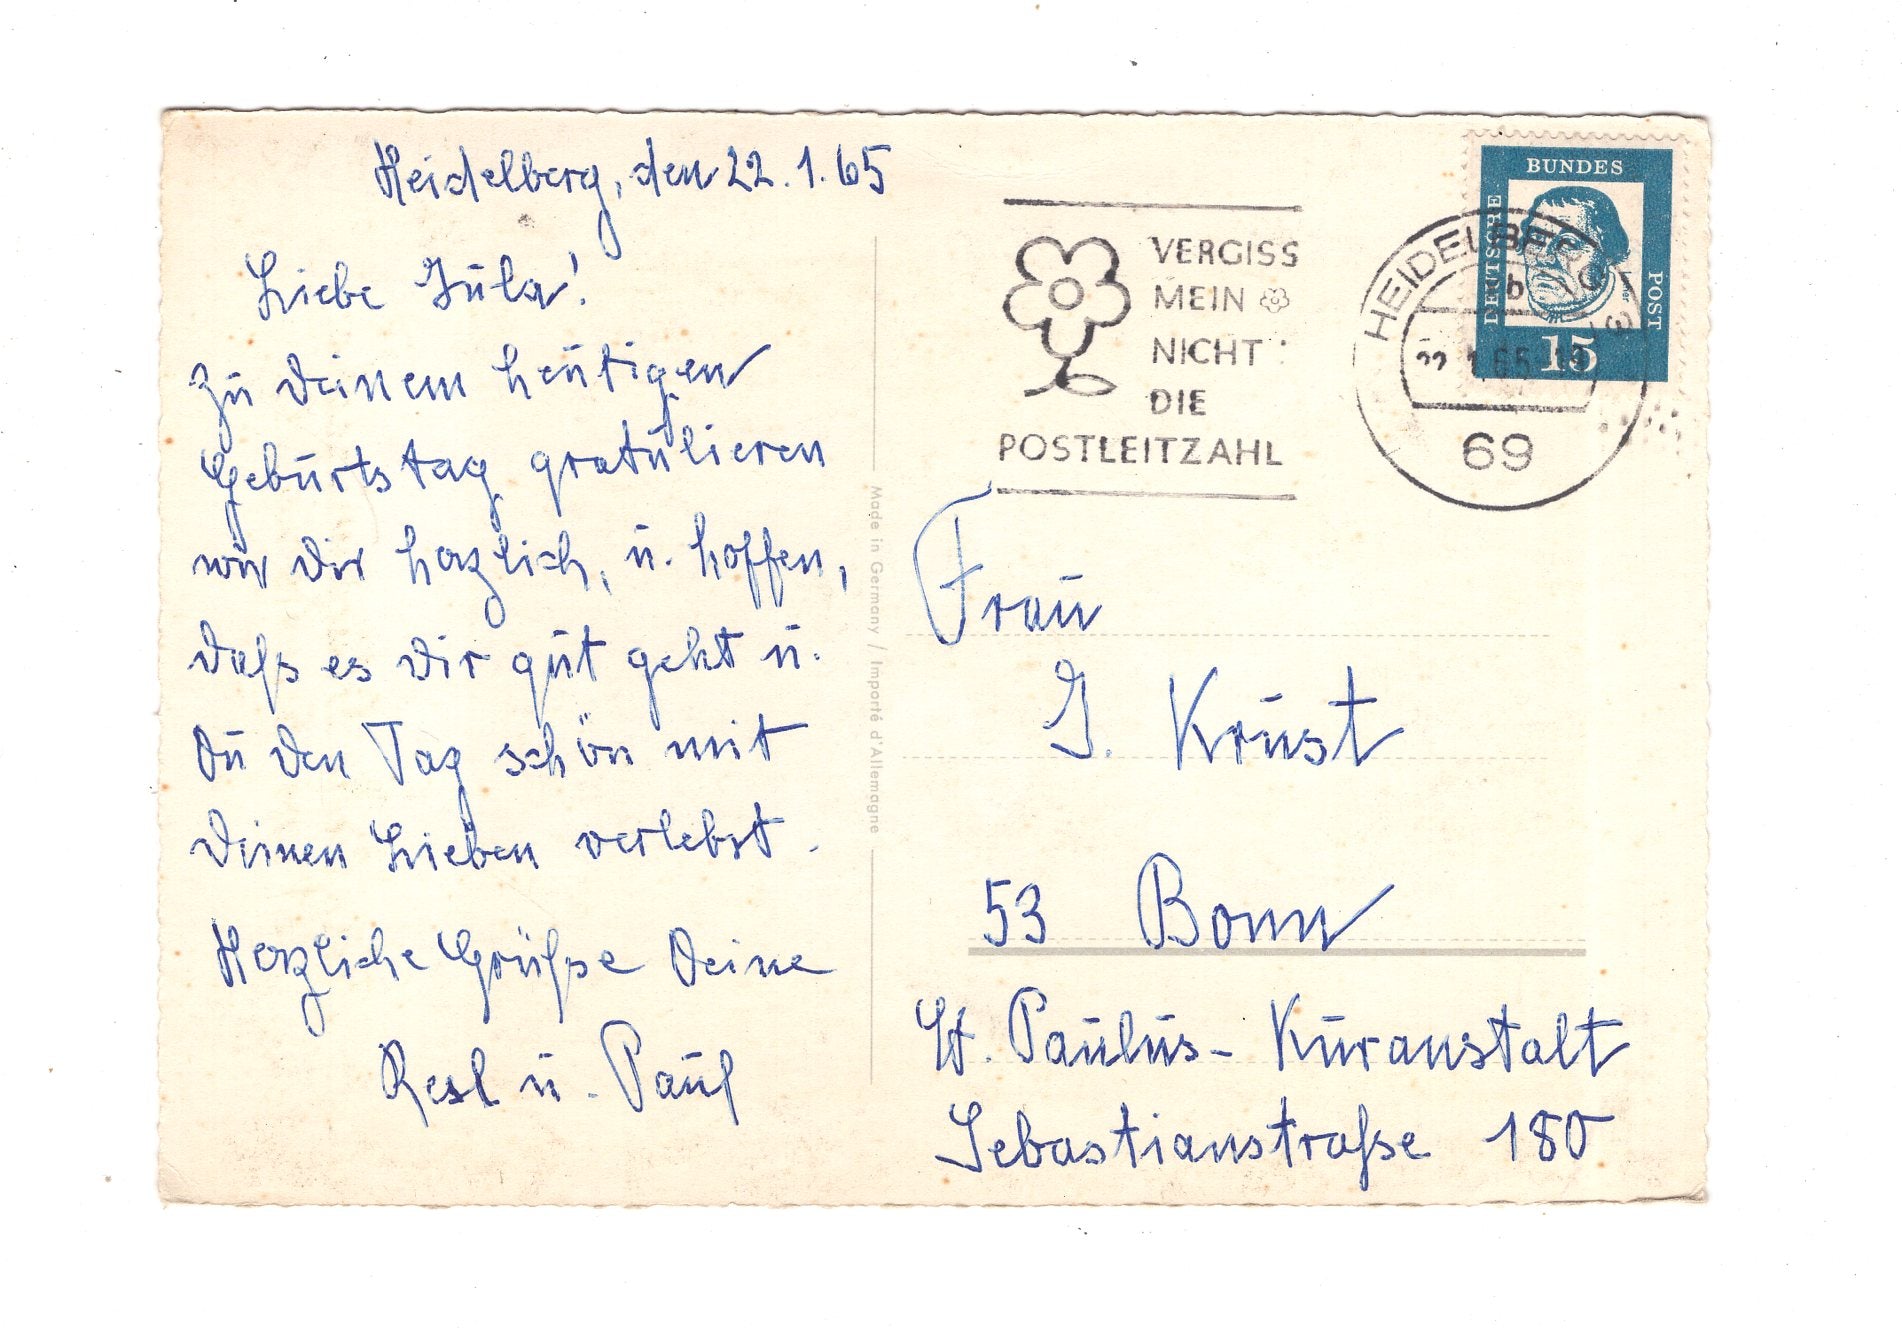 Heidelberg, den 22.1.65
Liebe Jula!
Zu Deinem heutigen
Geburtstag gratulieren
wir Dir herzlich, u. hoffen,
daß es Dir gut geht u.
Du den Tag schön mit
Deinen Lieben verlebst.
Herzliche Grüße Deine
Resl u. Paul
Made in Germany / Importé d'Allemagne
VERGISS
MEIN
NICHT
DIE
POSTLEITZAHL
HEIDELBERG
b
22.1.65-19
69
DEUTSCHE
BUNDES
POST
15
Frau
J. Krust
53 Bonn
St. Paulus-Kuranstalt
Sebastianstraße 180